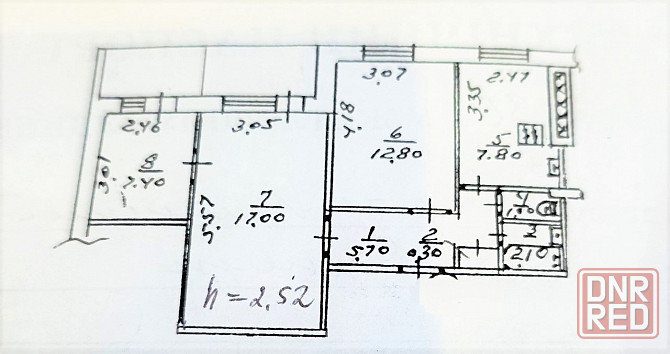 3.07
2.47
4.18
3.35
6
12.80
5
7.80
2.46
3.05
8
7.40
3.01
7
17.00
5.57
4
1.00
1
5.70
2
0.30
3
2.10
h = 2.52
DNR
RED